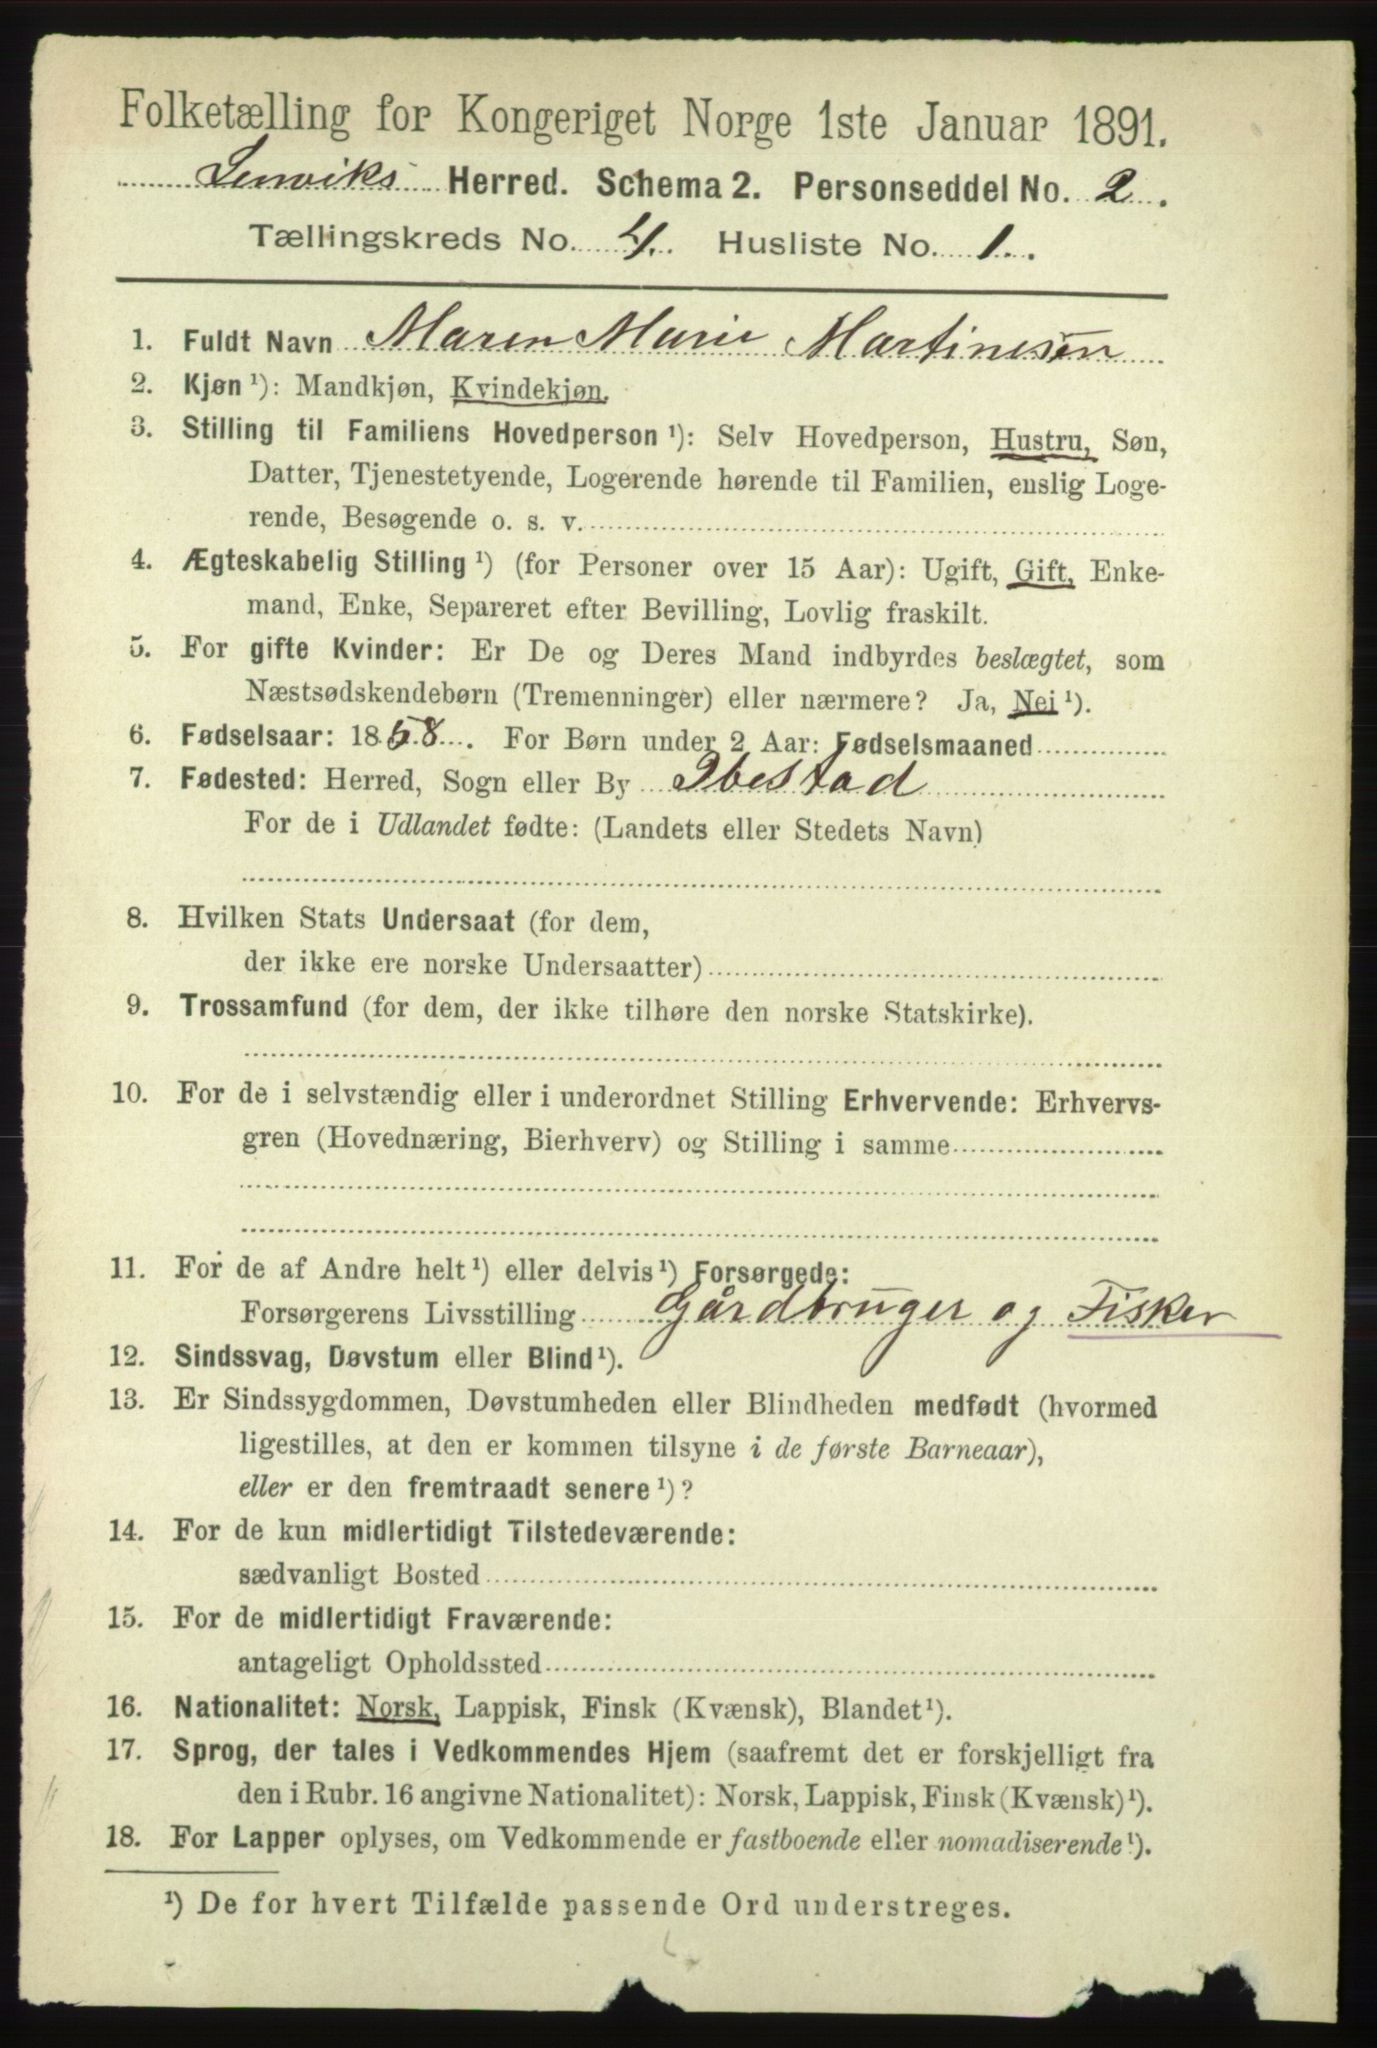 Folketælling for Kongeriget Norge 1ste Januar 1891.
Lenviks Herred. Schema 2. Personseddel No. 2.
Tællingskreds No. 4. Husliste No. 1.
1. Fuldt Navn Maren Marie Martinesen
2. Kjøn ¹): Mandkjøn, Kvindekjøn.
3. Stilling til Familiens Hovedperson ¹): Selv Hovedperson, Hustru, Søn,
Datter, Tjenestetyende, Logerende hørende til Familien, enslig Loge-
rende, Besøgende o. s. v.
4. Ægteskabelig Stilling ¹) (for Personer over 15 Aar): Ugift, Gift, Enke-
mand, Enke, Separeret efter Bevilling, Lovlig fraskilt.
5. For gifte Kvinder: Er De og Deres Mand indbyrdes beslægtet, som
Næstsødskendebørn (Tremenninger) eller nærmere? Ja, Nei ¹).
6. Fødselsaar: 1858. For Børn under 2 Aar: Fødselsmaaned
7. Fødested: Herred, Sogn eller By Ibestad
For de i Udlandet fødte: (Landets eller Stedets Navn)
8. Hvilken Stats Undersaat (for dem,
der ikke ere norske Undersaatter)
9. Trossamfund (for dem, der ikke tilhøre den norske Statskirke).
10. For de i selvstændig eller i underordnet Stilling Erhvervende: Erhvervs-
gren (Hovednæring, Bierhverv) og Stilling i samme
11. For de af Andre helt ¹) eller delvis ¹) Forsørgede:
Forsørgerens Livsstilling Gårdbruger og Fisker
12. Sindssvag, Døvstum eller Blind ¹).
13. Er Sindssygdommen, Døvstumheden eller Blindheden medfødt (hvormed
ligestilles, at den er kommen tilsyne i de første Barneaar),
eller er den fremtraadt senere ¹)?
14. For de kun midlertidigt Tilstedeværende:
sædvanligt Bosted
15. For de midlertidigt Fraværende:
antageligt Opholdssted
16. Nationalitet: Norsk, Lappisk, Finsk (Kvænsk), Blandet ¹).
17. Sprog, der tales i Vedkommendes Hjem (saafremt det er forskjelligt fra
den i Rubr. 16 angivne Nationalitet): Norsk, Lappisk, Finsk (Kvænsk) ¹).
18. For Lapper oplyses, om Vedkommende er fastboende eller nomadiserende ¹).
¹) De for hvert Tilfælde passende Ord understreges.